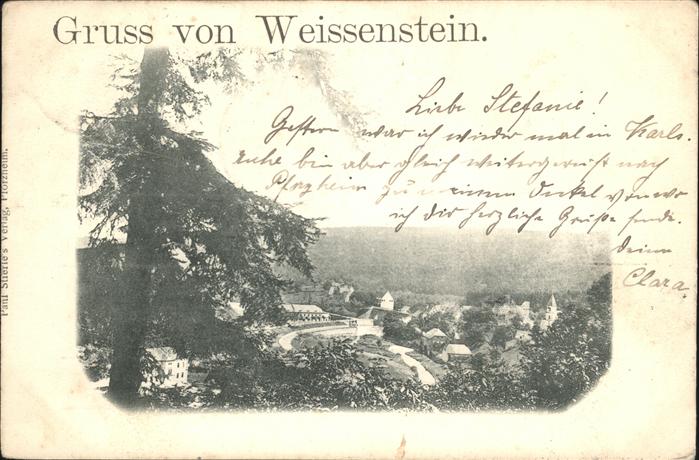 Gruss von Weissenstein.
Liebe Stefanie!
Gestern war ich wieder mal in Karls-
ruhe bin aber gleich weitergereist nach
Pforzheim zu meinem Onkel von wo
ich dir herzliche Grüße sende.
deine
Clara
Paul Stierle's Verlag, Pforzheim.